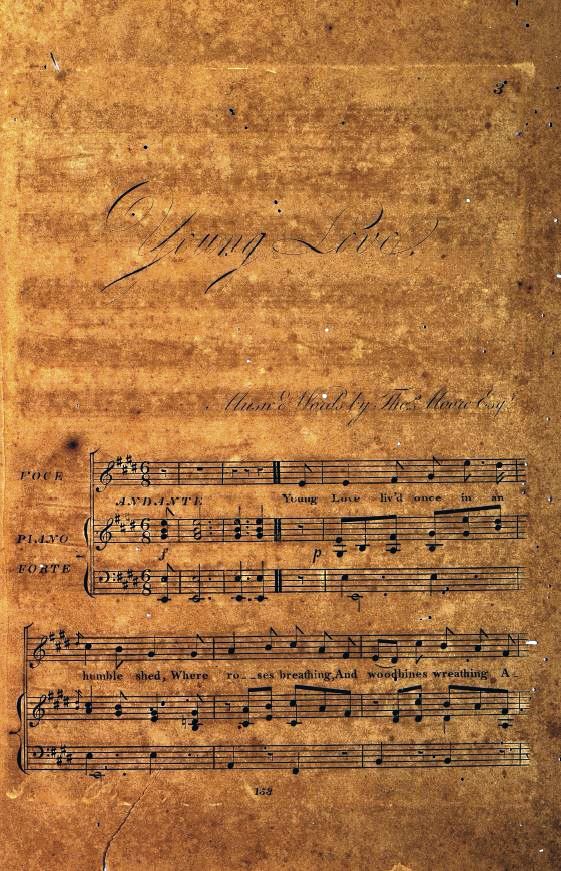 3
Young Love.
Music & Words by Thos. Moore Esqr.
VOCE
ANDANTE
Young Love liv'd once in an
PIANO
f
p
FORTE
humble shed, Where ro__ses breathing, And woodbines wreathing A_
153